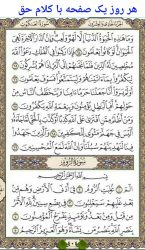 هر روز یک صفحه با کلام حق
سورة العنكبوت
الجزء الحادي والعشرون
وَمَا هَٰذِهِ الْحَيَوٰةُ الدُّنْيَا إِلَّا لَهْوٌ وَلَعِبٌ وَإِنَّ الدَّارَ الْآخِرَةَ لَهِيَ
الْحَيَوَانُ لَوْ كَانُوا يَعْلَمُونَ ٦٤ فَإِذَا رَكِبُوا فِي الْفُلْكِ دَعَوُا
اللَّهَ مُخْلِصِينَ لَهُ الدِّينَ فَلَمَّا نَجَّىٰهُمْ إِلَى الْبَرِّ إِذَا هُمْ يُشْرِكُونَ ٦٥
لِيَكْفُرُوا بِمَا ءَاتَيْنَٰهُمْ وَلِيَتَمَتَّعُوا فَسَوْفَ يَعْلَمُونَ ٦٦ أَوَلَمْ يَرَوْا
أَنَّا جَعَلْنَا حَرَمًا ءَامِنًا وَيُتَخَطَّفُ النَّاسُ مِنْ حَوْلِهِمْ أَفَبِالْبَٰطِلِ
يُؤْمِنُونَ وَبِنِعْمَةِ اللَّهِ يَكْفُرُونَ ٦٧ وَمَنْ أَظْلَمُ مِمَّنِ افْتَرَىٰ
عَلَى اللَّهِ كَذِبًا أَوْ كَذَّبَ بِالْحَقِّ لَمَّا جَاءَهُ أَلَيْسَ فِي جَهَنَّمَ
مَثْوًى لِلْكَٰفِرِينَ ٦٨ وَالَّذِينَ جَٰهَدُوا فِينَا
لَنَهْدِيَنَّهُمْ سُبُلَنَا وَإِنَّ اللَّهَ لَمَعَ الْمُحْسِنِينَ ٦٩
سُورَةُ الرُّومِ
بِسْمِ اللَّهِ الرَّحْمَٰنِ الرَّحِيمِ
الٓمٓ ١ غُلِبَتِ الرُّومُ ٢ فِي أَدْنَى الْأَرْضِ وَهُمْ مِنْ بَعْدِ
غَلَبِهِمْ سَيَغْلِبُونَ ٣ فِي بِضْعِ سِنِينَ لِلَّهِ الْأَمْرُ
مِنْ قَبْلُ وَمِنْ بَعْدُ وَيَوْمَئِذٍ يَفْرَحُ الْمُؤْمِنُونَ ٤
بِنَصْرِ اللَّهِ يَنْصُرُ مَنْ يَشَاءُ وَهُوَ الْعَزِيزُ الرَّحِيمُ ٥
٤٠٤